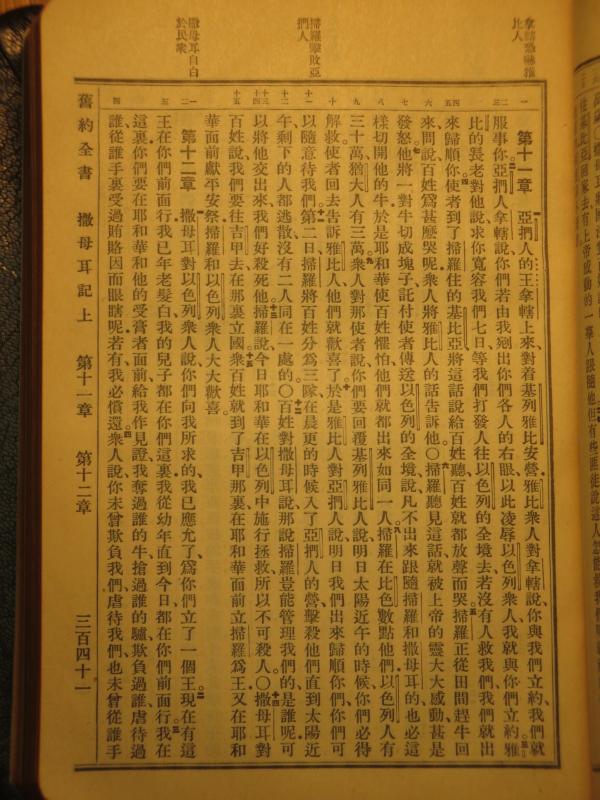 拿轄恐嚇雅比人
掃羅擊敗亞捫人
撒母耳自白於民衆
第十一章 亞捫人的王拿轄上來、對着基列雅比安營、雅比衆人對拿轄說、你與我們立約、我們就
服事你。亞捫人拿轄說、你們若由我剜出你們各人的右眼、以此凌辱以色列衆人、我就與你們立約。雅
比的長老對他說、求你寬容我們七日、等我們打發人往以色列的全境去、若沒有人救我們、我們就出
來歸順你。使者到了掃羅住的基比亞、將這話說給百姓聽、百姓就都放聲而哭。掃羅正從田間趕牛回
來、問說、百姓爲甚麼哭呢、衆人將雅比人的話告訴他。〇掃羅聽見這話、就被上帝的靈大大感動、甚是
發怒。他將一對牛切成塊子、託付使者傳送以色列的全境、說、凡不出來跟隨掃羅和撒母耳的、也必這
樣切開他的牛、於是耶和華使百姓懼怕、他們就都出來如同一人。掃羅在比色數點他們、以色列人有
三十萬、猶大人有三萬。衆人對那使者說、你們要回覆基列雅比人說、明日太陽近午的時候、你們必得
解救、使者回去告訴雅比人、他們就歡喜了。於是雅比人對亞捫人說、明日我們出來歸順你們、你們可
以隨意待我們。第二日掃羅將百姓分爲三隊、在晨更的時候入了亞捫人的營、擊殺他們直到太陽近
午、剩下的人都逃散、沒有二人同在一處的。〇百姓對撒母耳說、那說掃羅豈能管理我們的是誰呢、可
以將他交出來、我們好殺死他。掃羅說、今日耶和華在以色列中施行拯救、所以不可殺人。〇撒母耳對
百姓說、我們要往吉甲去、在那裏立國。衆百姓就到了吉甲那裏、在耶和華面前立掃羅爲王、又在耶和
華面前獻平安祭、掃羅和以色列衆人大大歡喜。
第十二章 撒母耳對以色列衆人說、你們向我所求的、我已應允了、爲你們立了一個王。現在有這
王在你們前面行、我已年老髮白、我的兒子都在你們這裏、我從幼年直到今日都在你們前面行。我在
這裏、你們要在耶和華和他的受膏者面前給我作見證、我奪過誰的牛、搶過誰的驢、欺負過誰、虐待過
誰、從誰手裏受過賄賂因而眼瞎呢、若有、我必償還。衆人說、你未曾欺負我們、虐待我們、也未曾從誰手
舊約全書 撒母耳記上 第十一章 第十二章 三百四十一